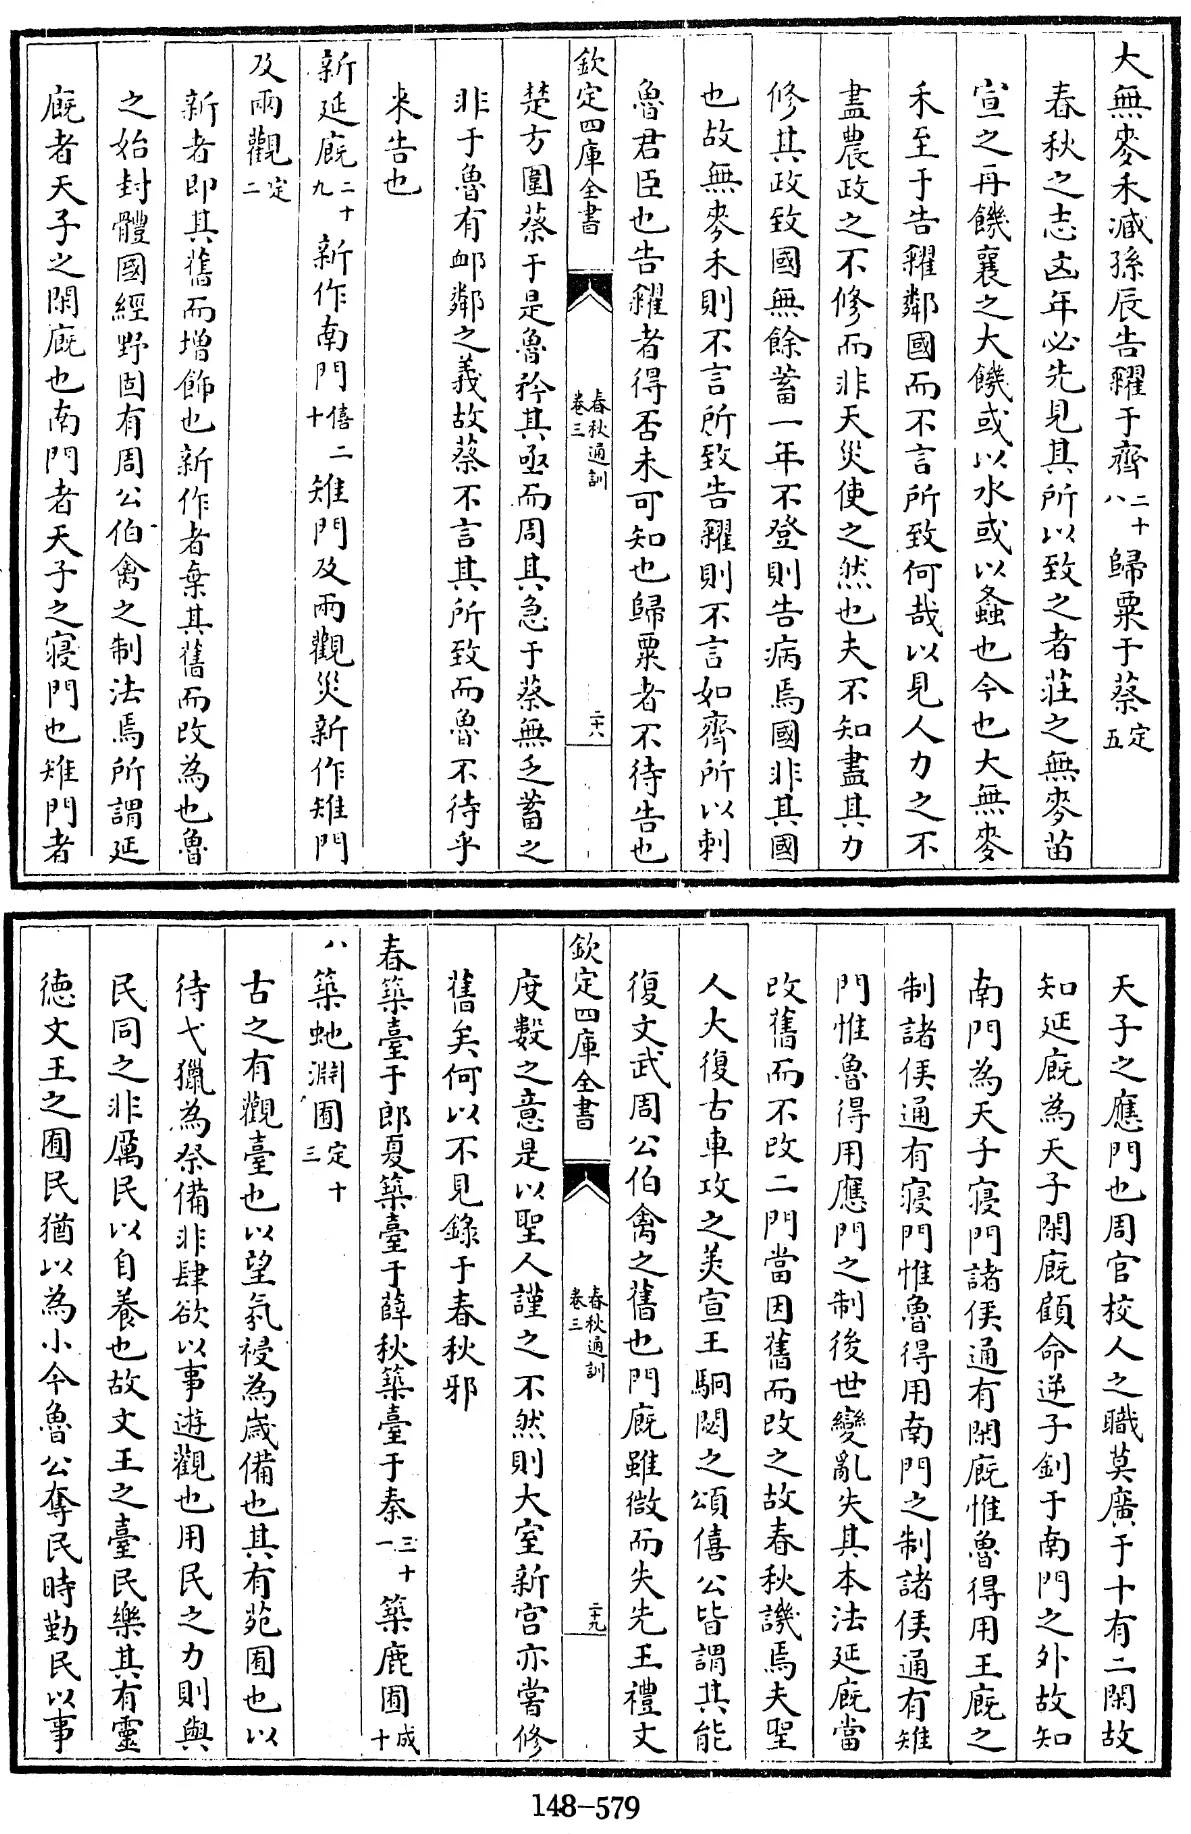 大無麥禾臧孫辰告糴于齊二十八歸粟于蔡定五
春秋之志凶年必先見其所以致之者莊之無麥苗
宣之再饑襄之大饑或以水或以螽也今也大無麥
禾至于告糴鄰國而不言所致何哉以見人力之不
盡農政之不修而非天災使之然也夫不知盡其力
修其政致國無餘蓄一年不登則告病焉國非其國
也故無麥禾則不言所致告糴則不言如齊所以刺
魯君臣也告糴者得否未可知也歸粟者不待告也
欽定四庫全書
春秋通訓
卷三
二十八
楚方圍蔡于是魯矜其亟而周其急于蔡無乏蓄之
非于魯有卹鄰之義故蔡不言其所致而魯不待乎
来告也
新延廐二十九新作南門僖二十雉門及兩觀災新作雉門
及兩觀定二
新者即其舊而增飾也新作者棄其舊而改為也魯
之始封體國經野固有周公伯禽之制法焉所謂延
廐者天子之閑廐也南門者天子之寢門也雉門者
天子之應門也周官校人之職莫廣于十有二閑故
知延廐為天子閑廐顧命逆子釗于南門之外故知
南門為天子寢門諸侯通有閑廐惟魯得用王廐之
制諸侯通有寢門惟魯得用南門之制諸侯通有雉
門惟魯得用應門之制後世變亂失其本法延廐當
改舊而不改二門當因舊而改之故春秋譏焉夫聖
人大復古車攻之美宣王駉閟之頌僖公皆謂其能
復文武周公伯禽之舊也門廐雖微而失先王禮文
欽定四庫全書
春秋通訓
卷三
二十九
度數之意是以聖人謹之不然則大室新宫亦嘗修
舊矣何以不見錄于春秋邪
春築臺于郎夏築臺于薛秋築臺于秦三十一築鹿囿成十
八築虵淵囿定十三
古之有觀臺也以望氛祲為歲備也其有苑囿也以
待弋獵為祭備非肆欲以事遊觀也用民之力則與
民同之非厲民以自養也故文王之臺民樂其有靈
德文王之囿民猶以為小今魯公奪民時勤民以事
148-579